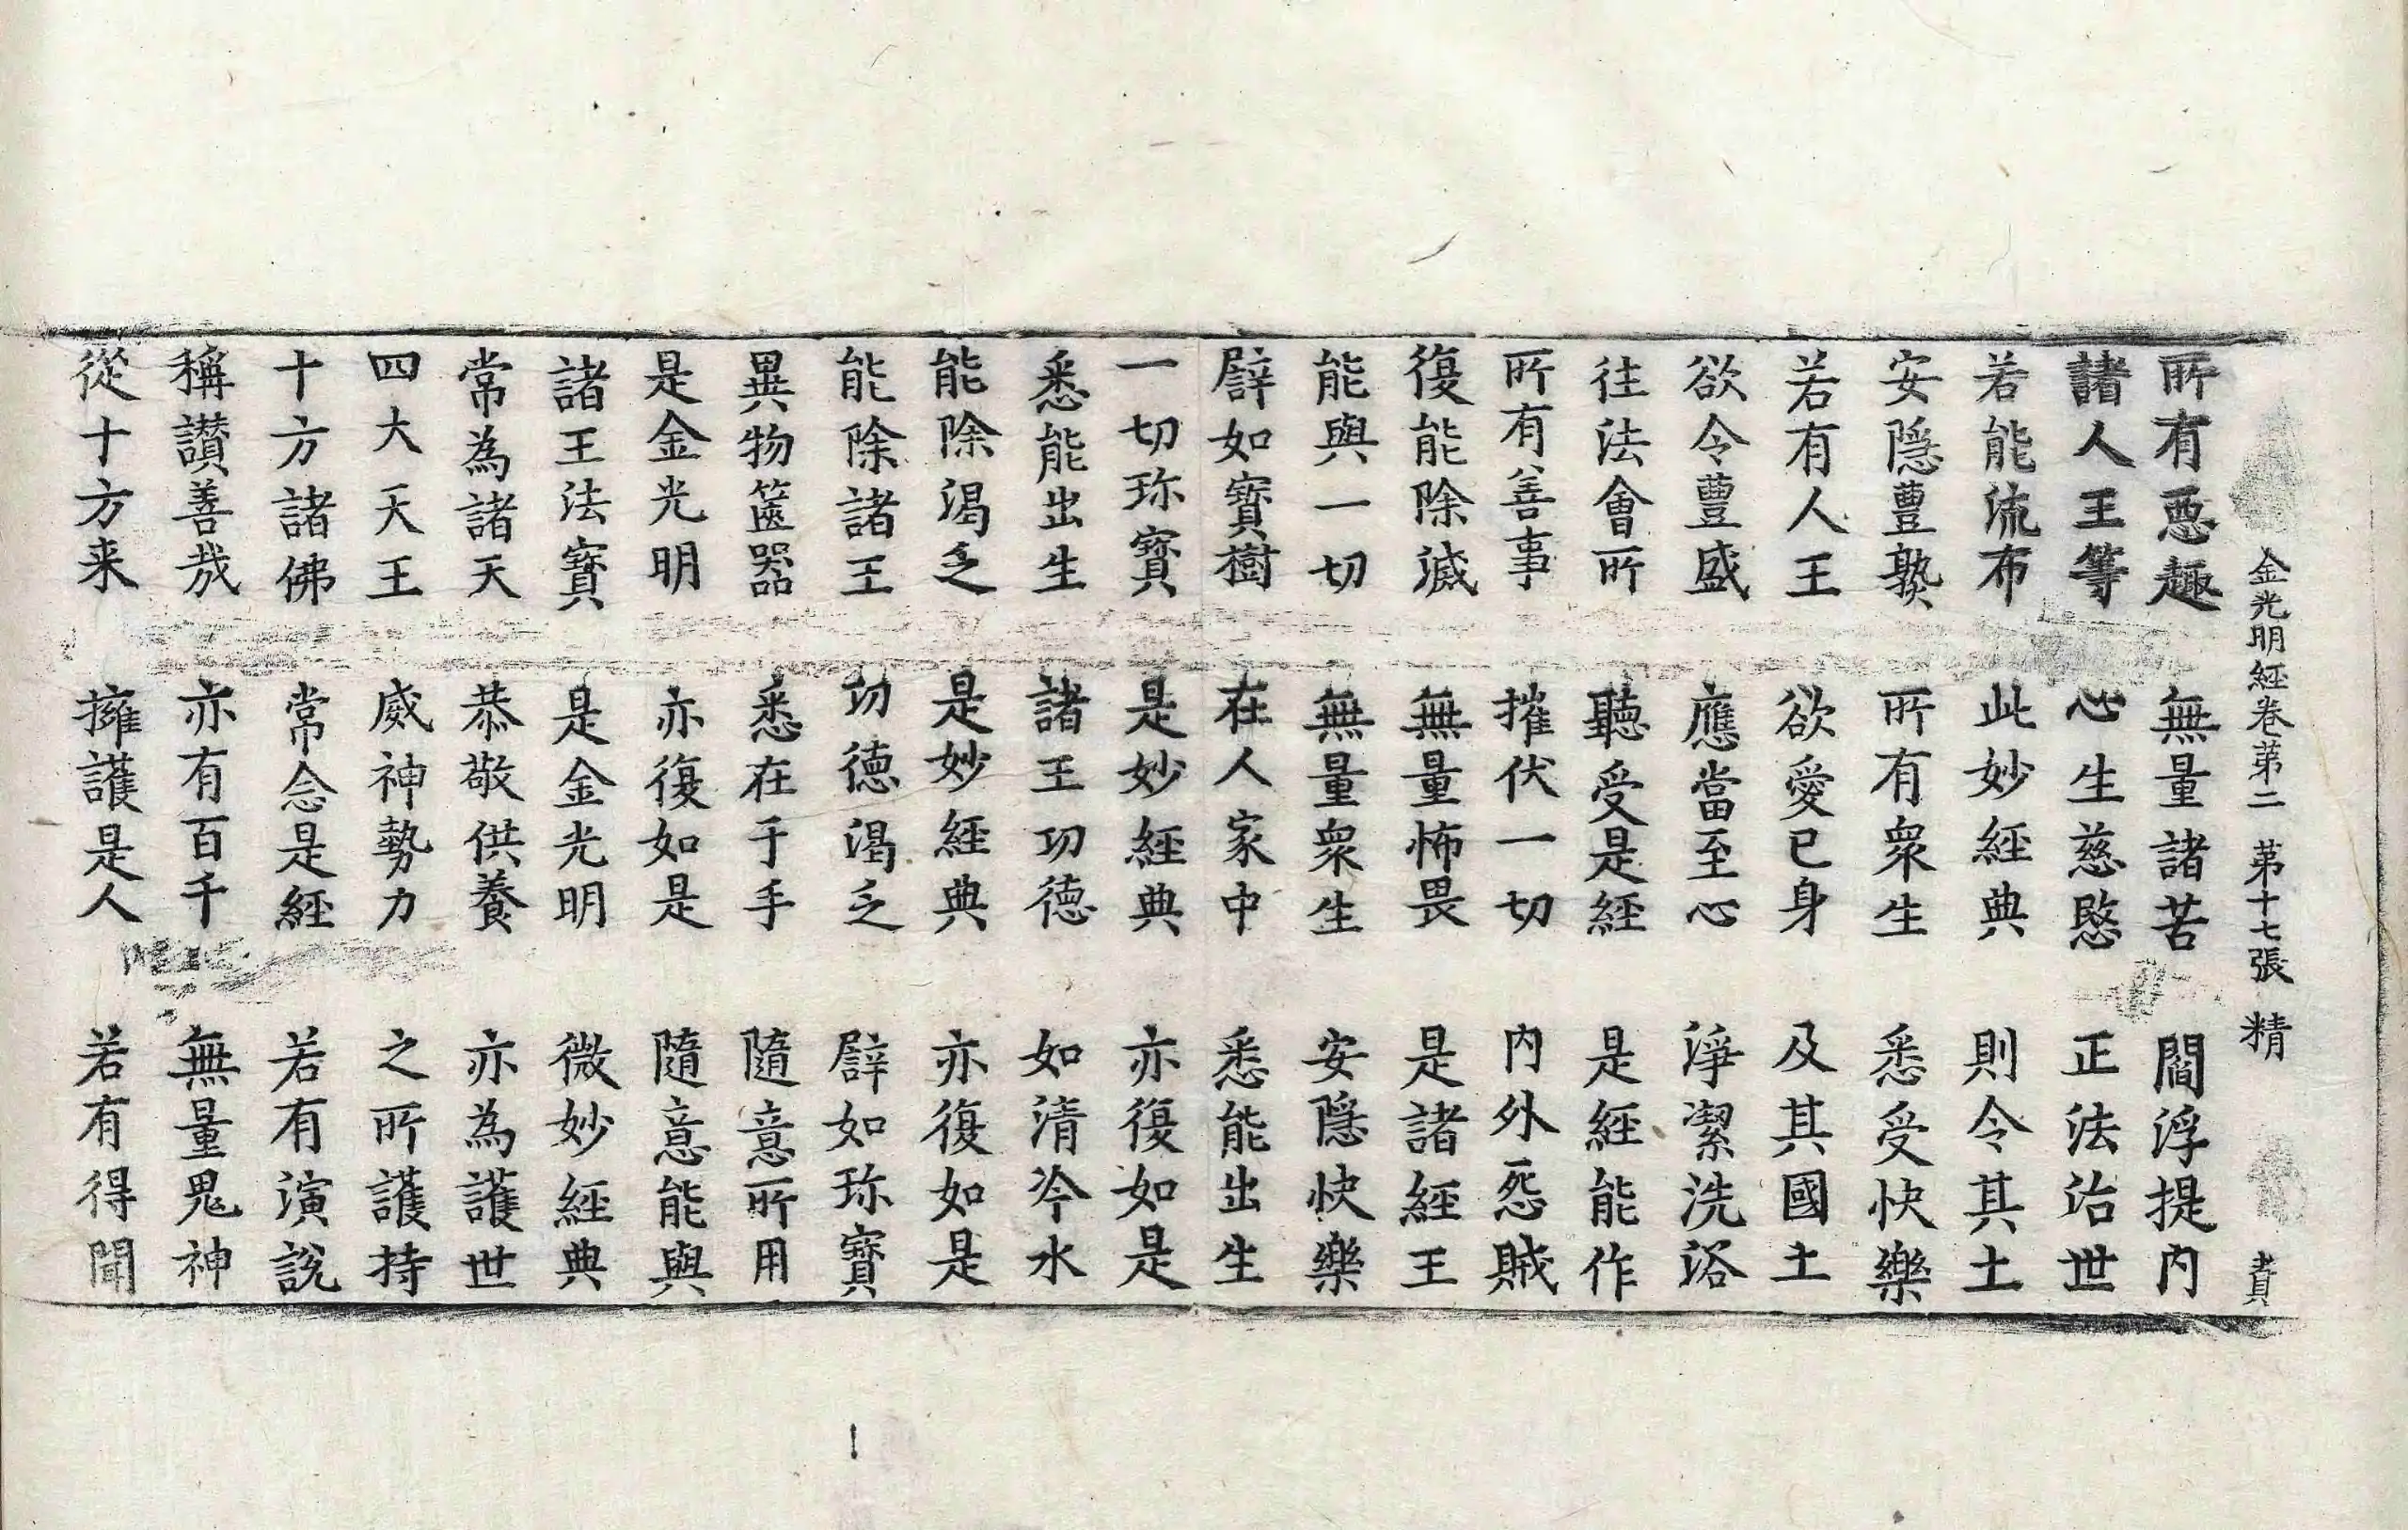 金光明經卷第二 第十七張 精
所有惡趣 無量諸苦 閻浮提内
諸人王等 心生慈愍 正法治世
若能流布 此妙經典 則令其土
安隱豊熟 所有衆生 悉受快樂
若有人王 欲愛己身 及其國土
欲令豊盛 應當至心 淨潔洗浴
往法會所 聽受是經 是經能作
所有善事 摧伏一切 内外怨賊
復能除滅 無量怖畏 是諸經王
能與一切 無量衆生 安隱快樂
譬如寶樹 在人家中 悉能出生
一切珎寶 是妙經典 亦復如是
悉能出生 諸王功德 如清冷水
能除渴乏 是妙經典 亦復如是
能除諸王 功德渴乏 譬如珎寶
異物篋器 悉在于手 隨意所用
是金光明 亦復如是 隨意能與
諸王法寶 是金光明 微妙經典
常為諸天 恭敬供養 亦為護世
四大天王 威神勢力 之所護持
十方諸佛 常念是經 若有演說
稱讃善哉 亦有百千 無量鬼神
從十方来 擁護是人 若有得聞